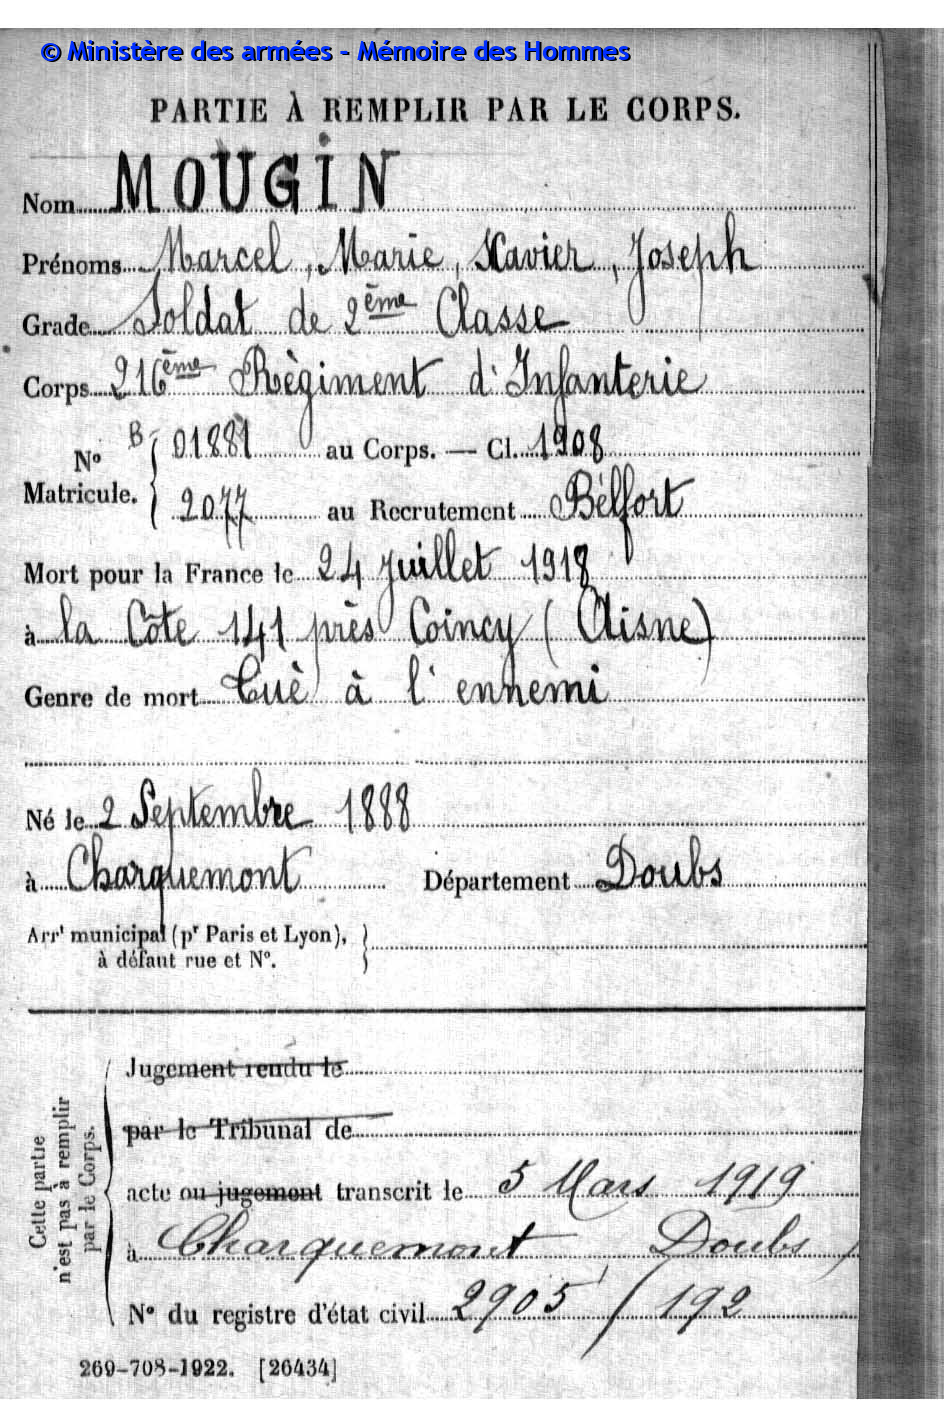 © Ministère des armées - Mémoire des Hommes
PARTIE À REMPLIR PAR LE CORPS.
Nom MOUGIN
Prénoms Marcel, Marie, Xavier, Joseph
Grade Soldat de 2ème Classe
Corps 216ème Règiment d'Infanterie
N° Matricule. B 01881 au Corps. — Cl. 1908
2077 au Recrutement Bélfort
Mort pour la France le 24 Juillet 1918
à la Côte 141 près Coincy (Aisne)
Genre de mort Tuè à l'ennemi
Né le 2 Septembre 1888
à Charquemont Département Doubs
Arrt municipal (pr Paris et Lyon),
à défaut rue et N°.
Cette partie
n'est pas à remplir
par le Corps.
Jugement rendu le
par le Tribunal de
acte ou jugement transcrit le 5 Mars 1919
à Charquemont, Doubs
N° du registre d'état civil 2905 / 192
269-708-1922. [26434]